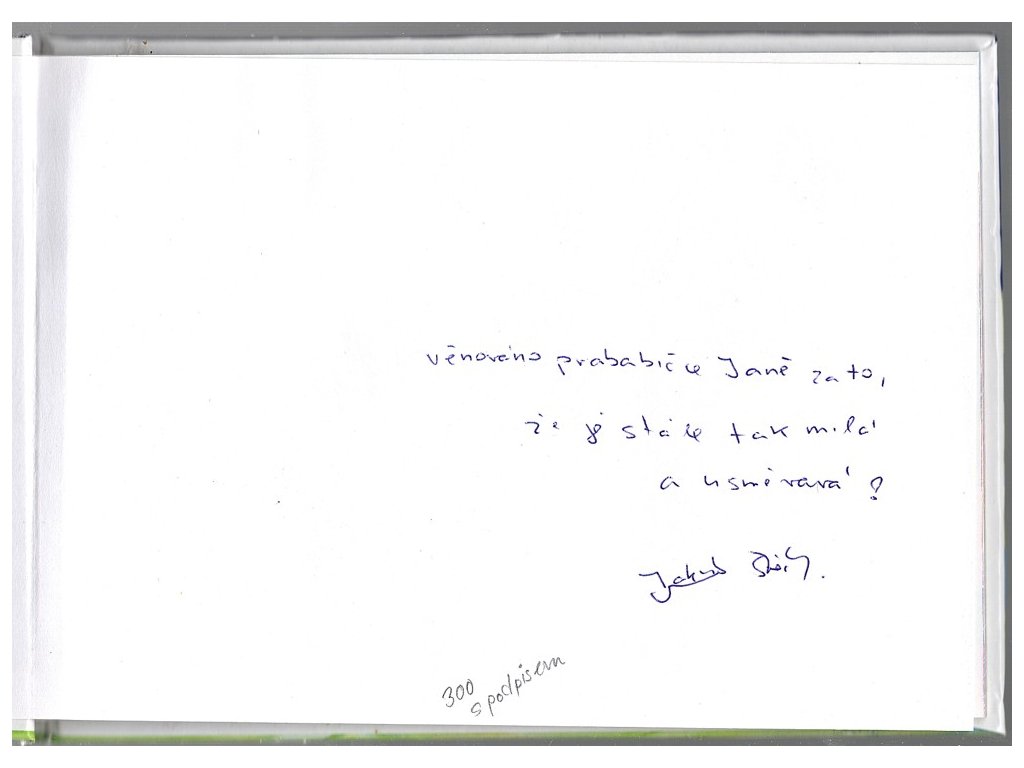 věnováno prababičce Janě za to,
že je stále tak milá
a usměvavá!
Jakub
300
s podpisem